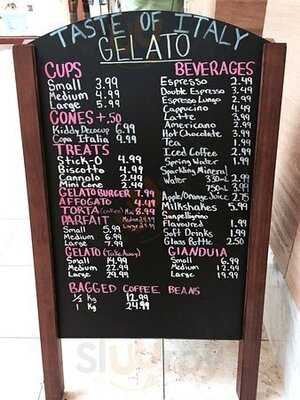 TASTE OF ITALY
GELATO
CUPS
Small 3.99
Medium 4.99
Large 5.99
CONES +.50
Kiddy Decocup 6.99
Copa Italia 9.99
TREATS
Stick-O 4.99
Biscotto 4.99
Cannolo 2.49
Mini Cone 2.49
GELATO BURGER 7.99
AFFOGATO 4.49
TORTA Mini 8.99
PARFAIT Medium
Small 5.99 Large
Medium 6.99
Large 7.99
GELATO (Take Away)
Small 14.99
Medium 22.99
Large 29.99
BEVERAGES
Espresso 2.49
Double Espresso 3.49
Espresso Lungo 2.99
Cappuccino 4.49
Latte 3.99
Americano 2.99
Hot Chocolate 3.99
Tea 1.99
Iced Coffee 2.99
Spring Water 1.99
Sparkling Mineral
Water 2.99
3.99
Apple/Orange Juice 2.75
Milkshakes 5.99
Sanpellegrino
Flavoured 1.99
Soft Drinks 1.99
Glass Bottle 2.50
GIANDUIA
Small 6.99
Medium 12.99
Large 19.99
BAGGED COFFEE BEANS
1/2 Kg 12.99
1 Kg 24.99